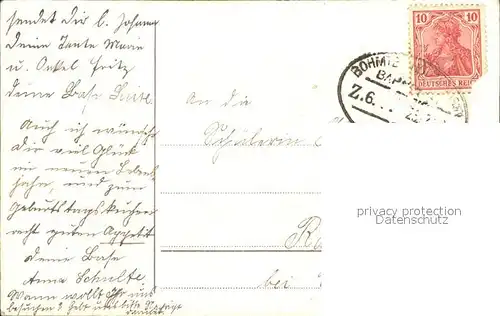 sendet dir l. Johanna
Deine Tante Marie
u. Onkel Fritz
deine Base
Auch ich wünsche
Dir viel Glück
im neuen Lebens
jahr, und zum
Geburtstagskuchen
recht guten Appetit
Deine Base
Anna Schulte
Wann wollt Ihr uns
besuchen?
An die
Schülerin
bei
10 10
DEUTSCHES REICH
BOHMTE
BA
Z.6.
privacy protection
Datenschutz